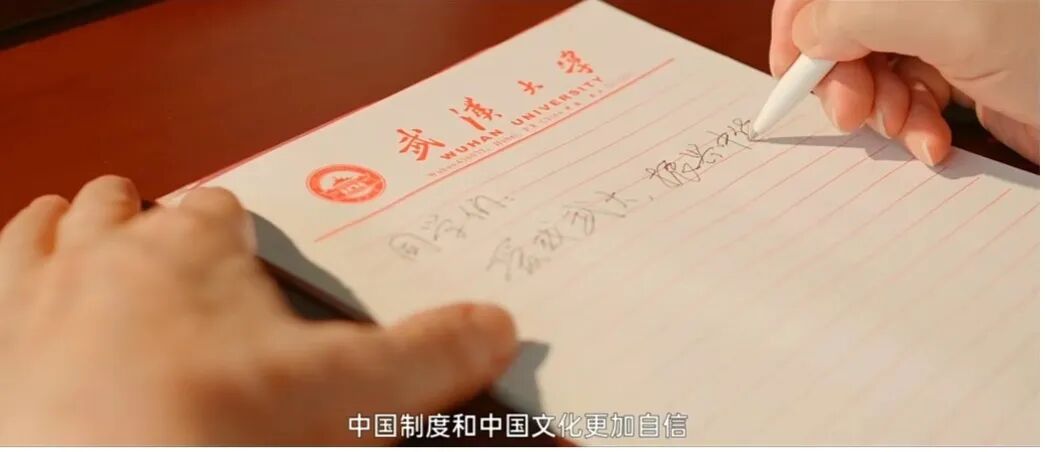 武汉大学
WUHAN UNIVERSITY
同学们：
武大，振兴中
中国制度和中国文化更加自信